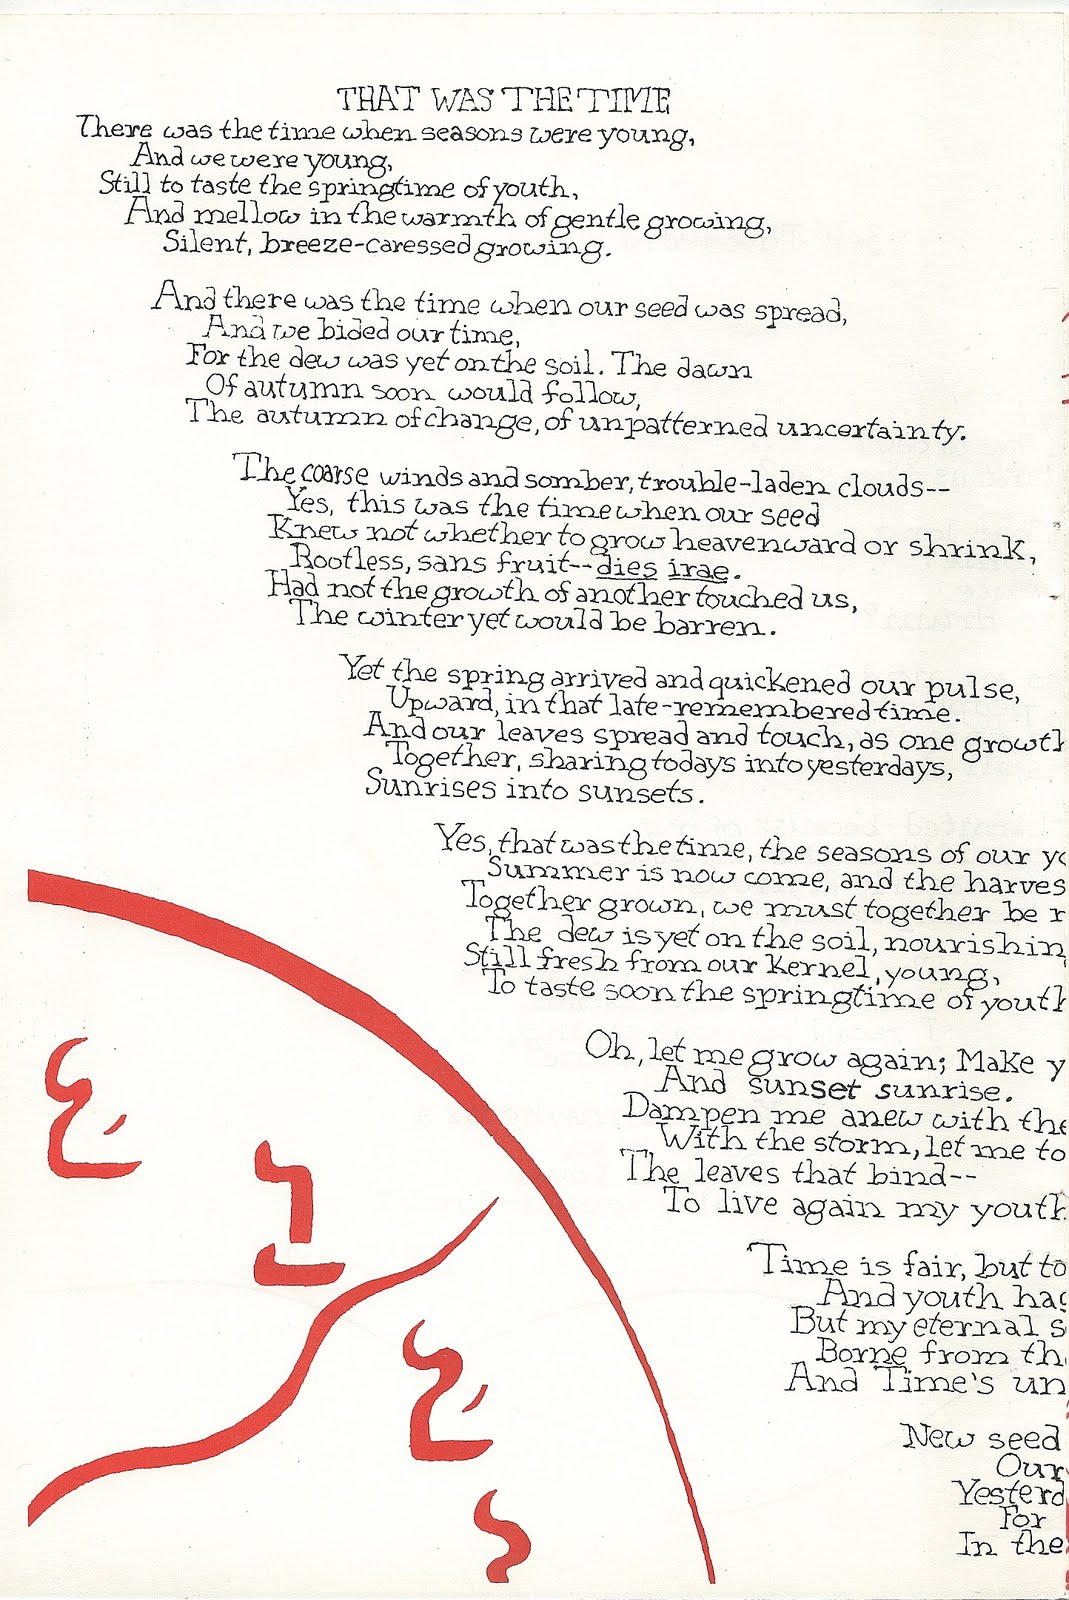 THAT WAS THE TIME
There was the time when seasons were young,
And we were young,
Still to taste the springtime of youth,
And mellow in the warmth of gentle growing,
Silent, breeze-caressed growing.
And there was the time when our seed was spread,
And we bided our time,
For the dew was yet on the soil. The dawn
Of autumn soon would follow,
The autumn of change, of unpatterned uncertainty.
The coarse winds and somber, trouble-laden clouds--
Yes, this was the time when our seed
Knew not whether to grow heavenward or shrink,
Rootless, sans fruit--dies irae.
Had not the growth of another touched us,
The winter yet would be barren.
Yet the spring arrived and quickened our pulse,
Upward, in that late-remembered time.
And our leaves spread and touch, as one growth
Together, sharing todays into yesterdays,
Sunrises into sunsets.
Yes, that was the time, the seasons of our yo
Summer is now come, and the harves
Together grown, we must together be r
The dew is yet on the soil, nourishin
Still fresh from our kernel, young,
To taste soon the springtime of youth
Oh, let me grow again; Make y
And sunset sunrise.
Dampen me anew with the
With the storm, let me to
The leaves that bind--
To live again my youth
Time is fair, but to
And youth ha
But my eternal s
Borne from th
And Time's un
New seed
Our
Yesterd
For
In the